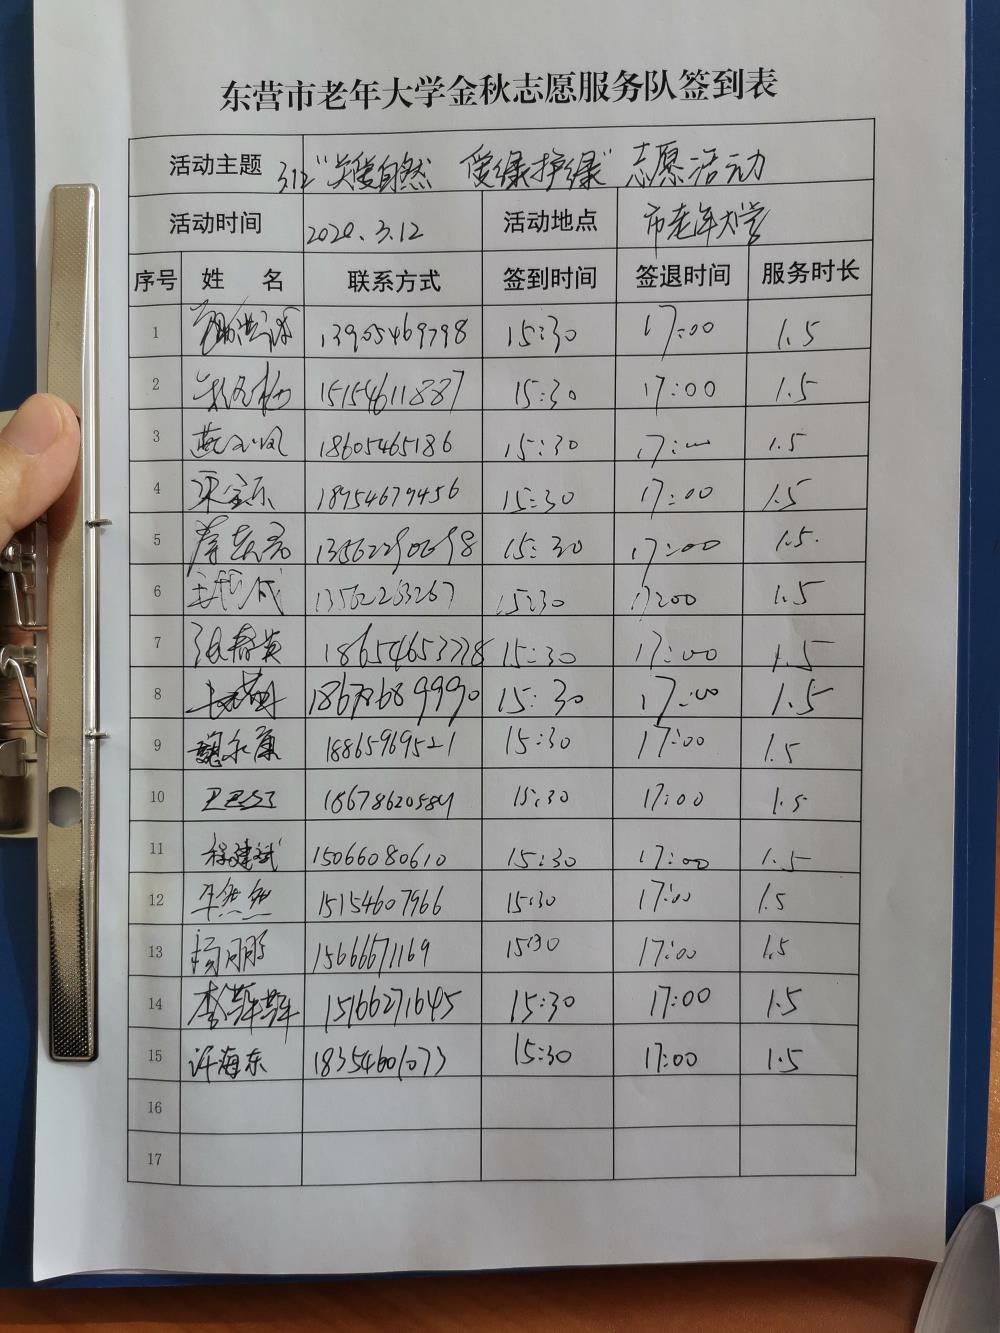 东营市老年大学金秋志愿服务队签到表
活动主题 3.12“关爱自然 爱绿护绿”志愿活动
活动时间 2020.3.12 活动地点 市老年大学
序号 姓 名 联系方式 签到时间 签退时间 服务时长
1 13905469798 15:30 17:00 1.5
2 15154611887 15:30 17:00 1.5
3 18605465186 15:30 17:00 1.5
4 18954679456 15:30 17:00 1.5
5 13562290698 15:30 17:00 1.5
6 13562263267 15:30 17:00 1.5
7 张春英 18654653778 15:30 17:00 1.5
8 15:30 17:00 1.5
9 魏永康 18865969521 15:30 17:00 1.5
10 15:30 17:00 1.5
11 程建斌 15066080610 15:30 17:00 1.5
12 15154607966 15:30 17:00 1.5
13 杨丽 15666671169 15:30 17:00 1.5
14 李 15166271645 15:30 17:00 1.5
15 许海东 18354601073 15:30 17:00 1.5
16
17